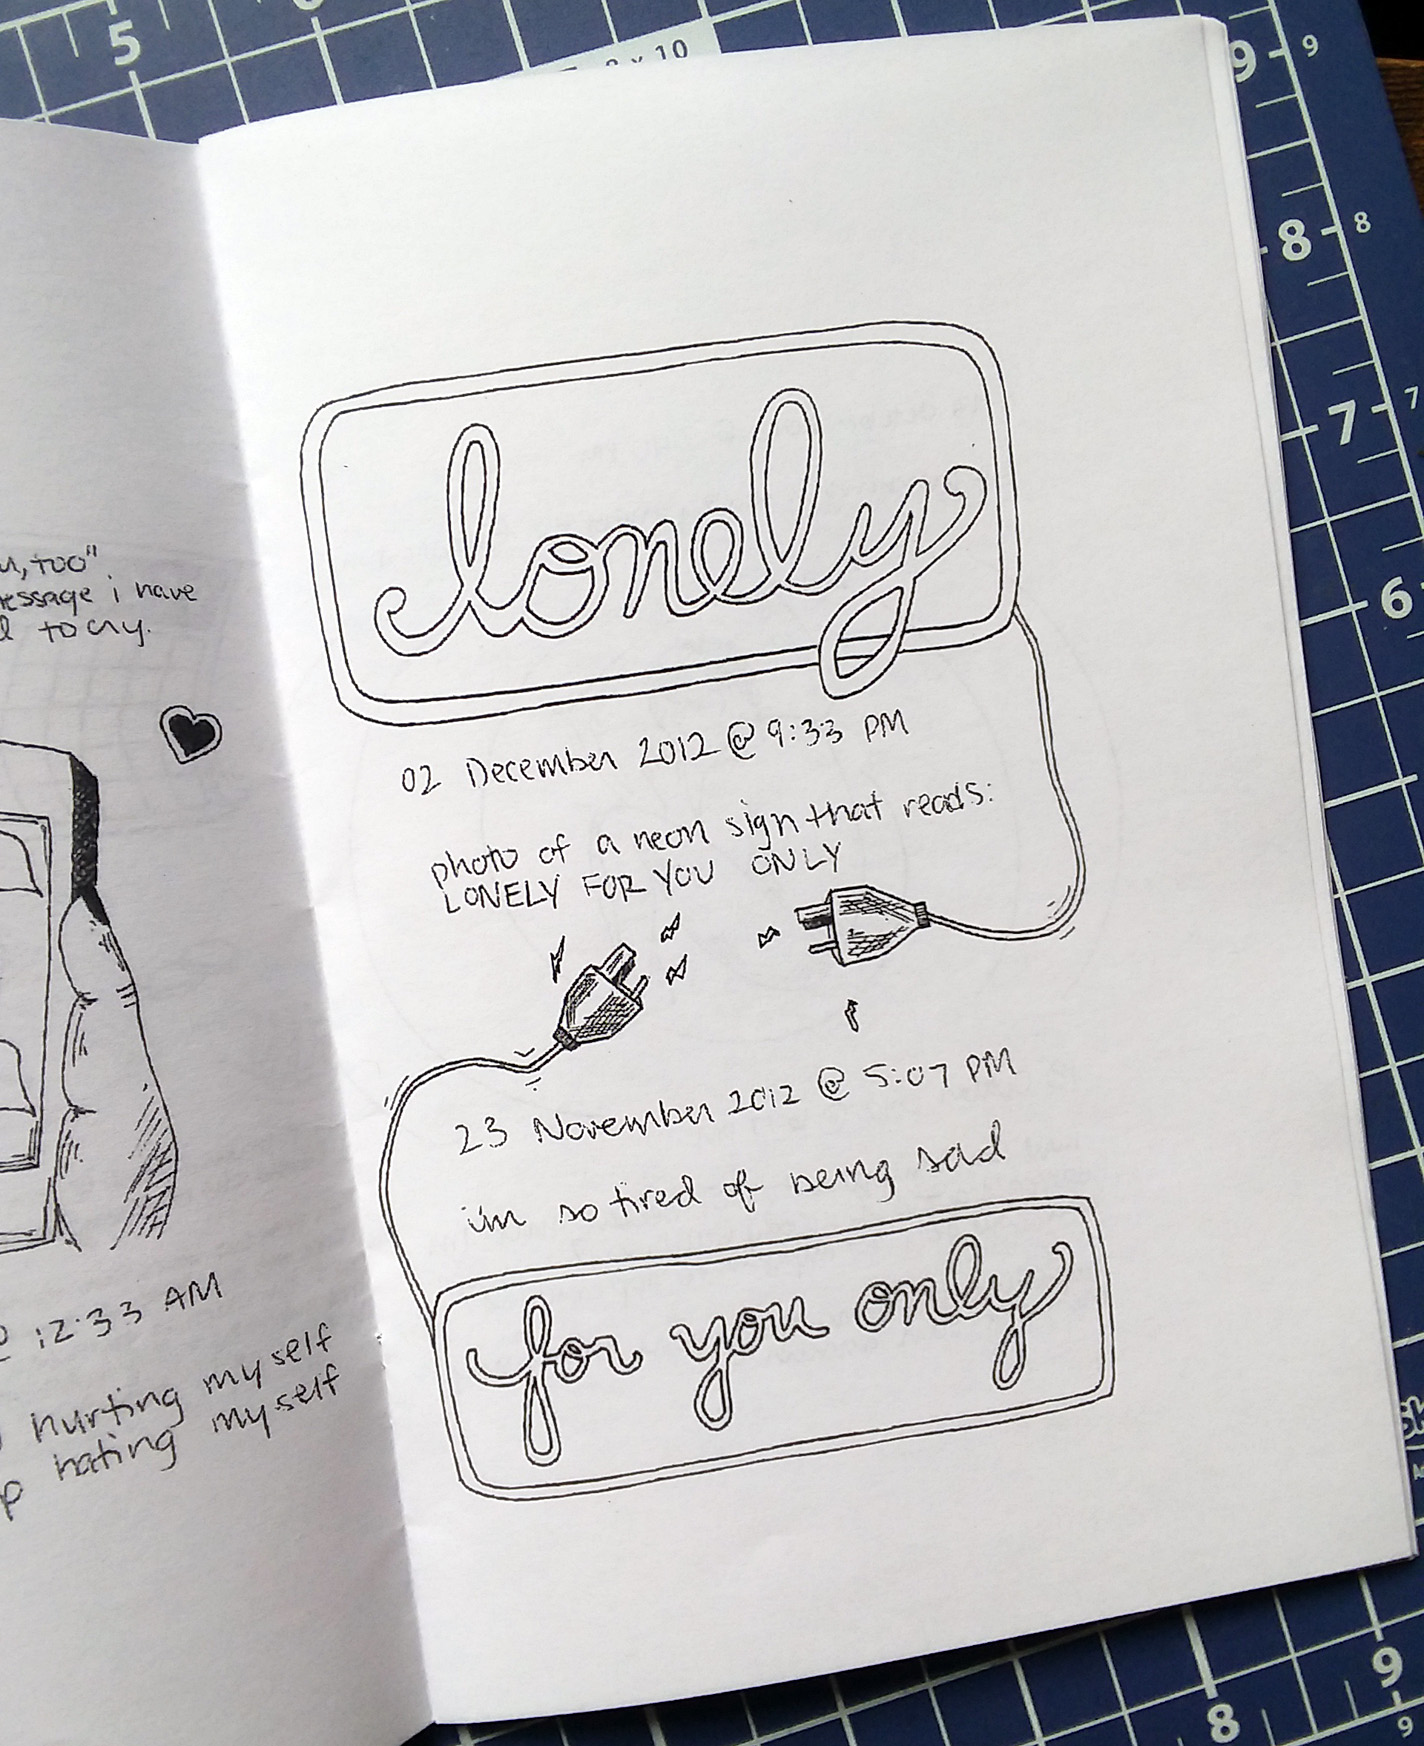 u, too"
message i have
to cry.
12:33 AM
hurting myself
hating myself
lonely
02 December 2012 @ 9:33 PM
photo of a neon sign that reads:
LONELY FOR YOU ONLY
23 November 2012 @ 5:07 PM
i'm so tired of being sad
for you only
5
8 x 10
9
9
8
8
7
7
6
9
9
8